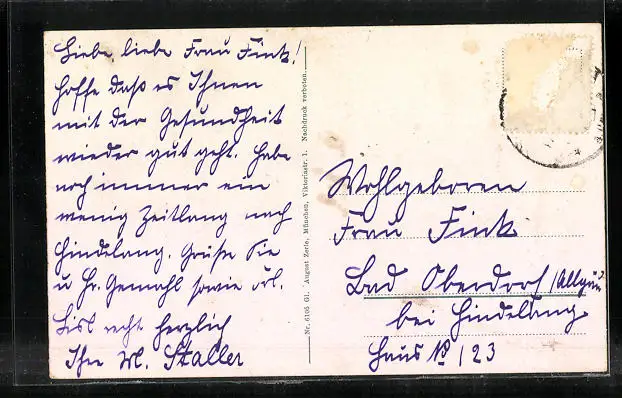 Liebe, liebe Frau Fink!
Hoffe daß es Ihnen
mit der Gesundheit
wieder gut geht. Habe
noch immer ein
wenig Zeitlang nach
Hindelang. Grüße Sie
u Hr. Gemahl sowie Frl.
Lisl recht herzlich
Ihre M. Staller
Nr. 6105 Gl. August Zerle, München, Viktoriastr. 1. Nachdruck verboten.
Wohlgeboren
Frau Fink
Bad Oberdorf /Allgäu
bei Hindelang
Haus No 123